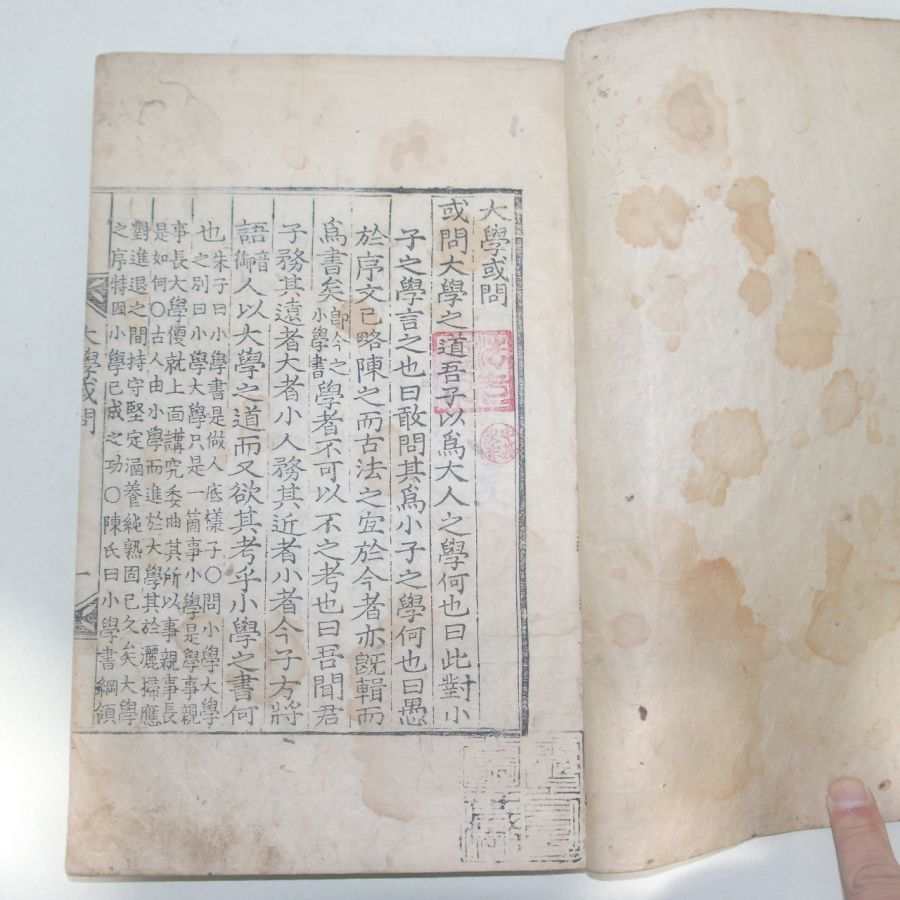 大學或問
或問大學之道吾子以爲大人之學何也曰此對小
子之學言之也曰敢問其爲小子之學何也曰愚
於序文已略陳之而古法之宜於今者亦旣輯而
爲書矣卽今之小學書學者不可以不之考也曰吾聞君
子務其遠者大者小人務其近者小者今子方將
語音御人以大學之道而又欲其考乎小學之書何
也朱子曰小學書是做人底樣子○問小學大學
之別曰小學大學只是一箇事小學是學事親
事長大學便就上面講究委曲其所以事親事長
是如何○古人由小學而進於大學其於灑掃應
對進退之間持守堅定涵養純熟固已久矣大學
之序特因小學已成之功○陳氏曰小學書綱領
大學或問
一